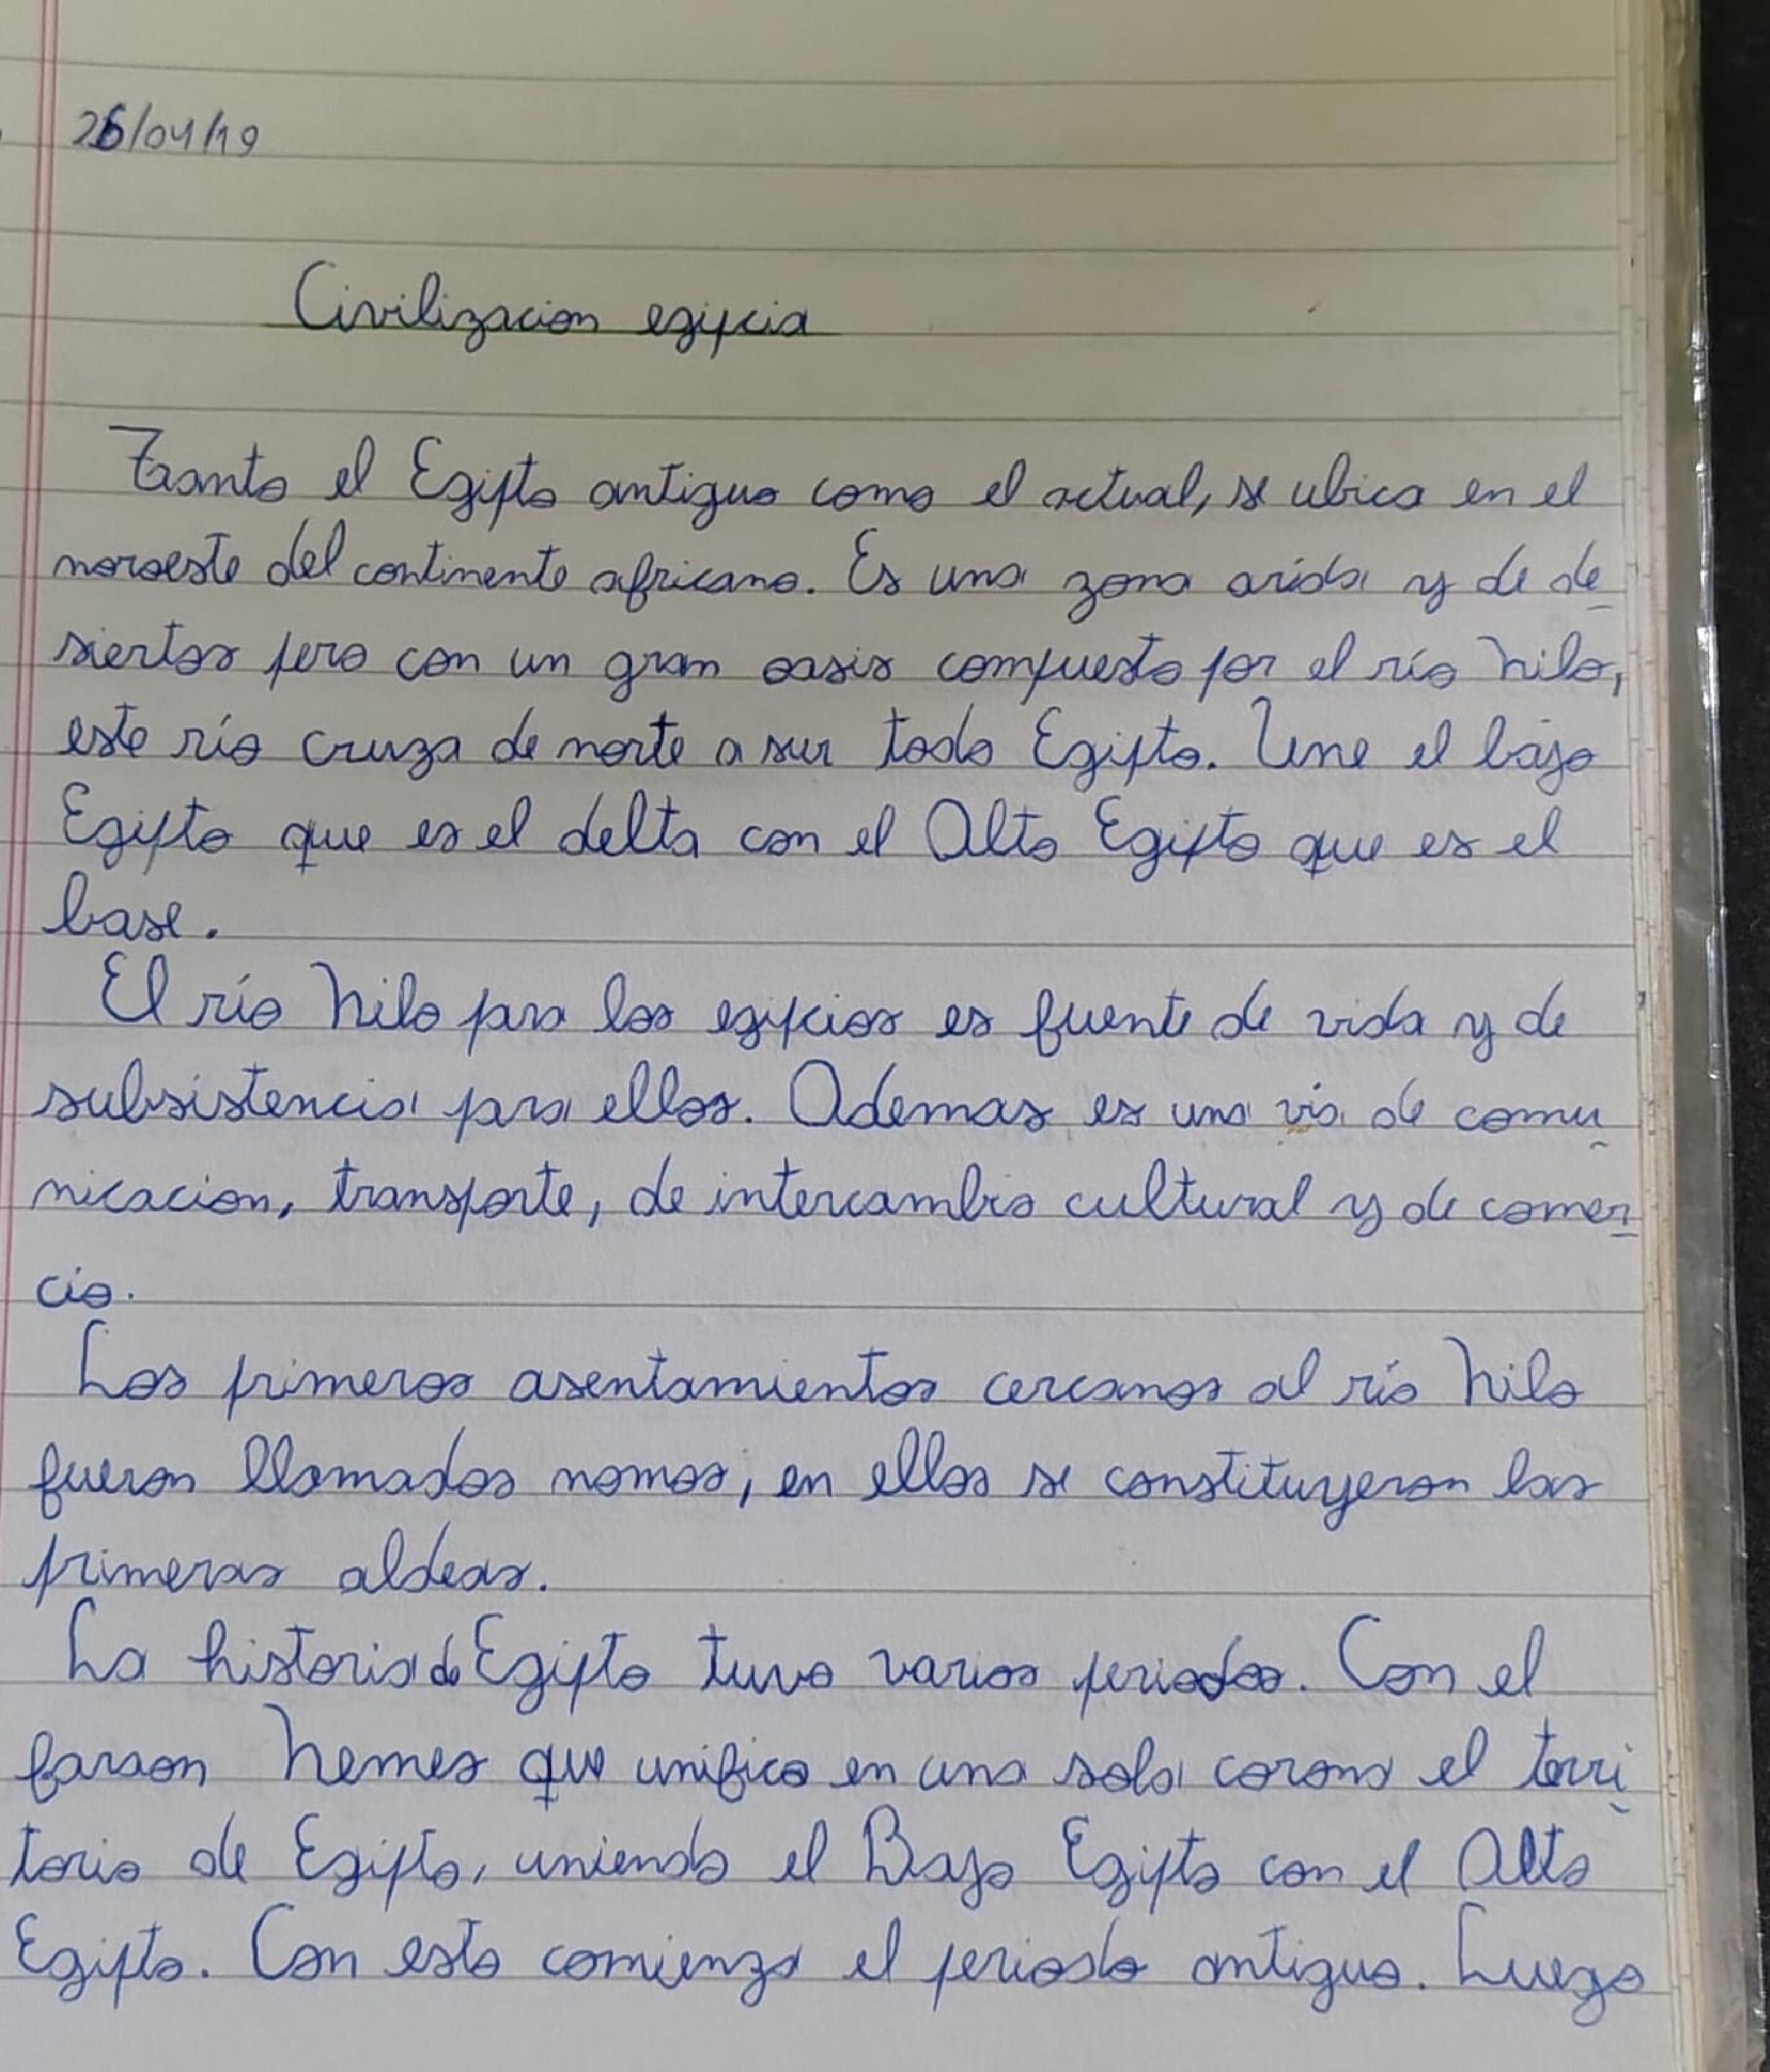 26/04/19
Civilizacion egipcia
Tanto el Egipto antiguo como el actual, se ubica en el
noroeste del continente africano. Es una zona arida y de de
siertos pero con un gran oasis compuesto por el río Nilo,
este río cruza de norte a sur todo Egipto. Une el bajo
Egipto que es el delta con el Alto Egipto que es el
base.
El río Nilo para los egipcios es fuente de vida y de
subsistencia para ellos. Ademas es una via de comu
nicacion, transporte, de intercambio cultural y de comer
cio.
Los primeros asentamientos cercanos al río Nilo
fueron llamados nomos, en ellos se constituyeron las
primeras aldeas.
La historia de Egipto tuvo varios periodos. Con el
faraon Nemes que unifico en una sola corona el terri
torio de Egipto, uniendo el Bajo Egipto con el Alto
Egipto. Con esto comienza el periodo antiguo. Luego